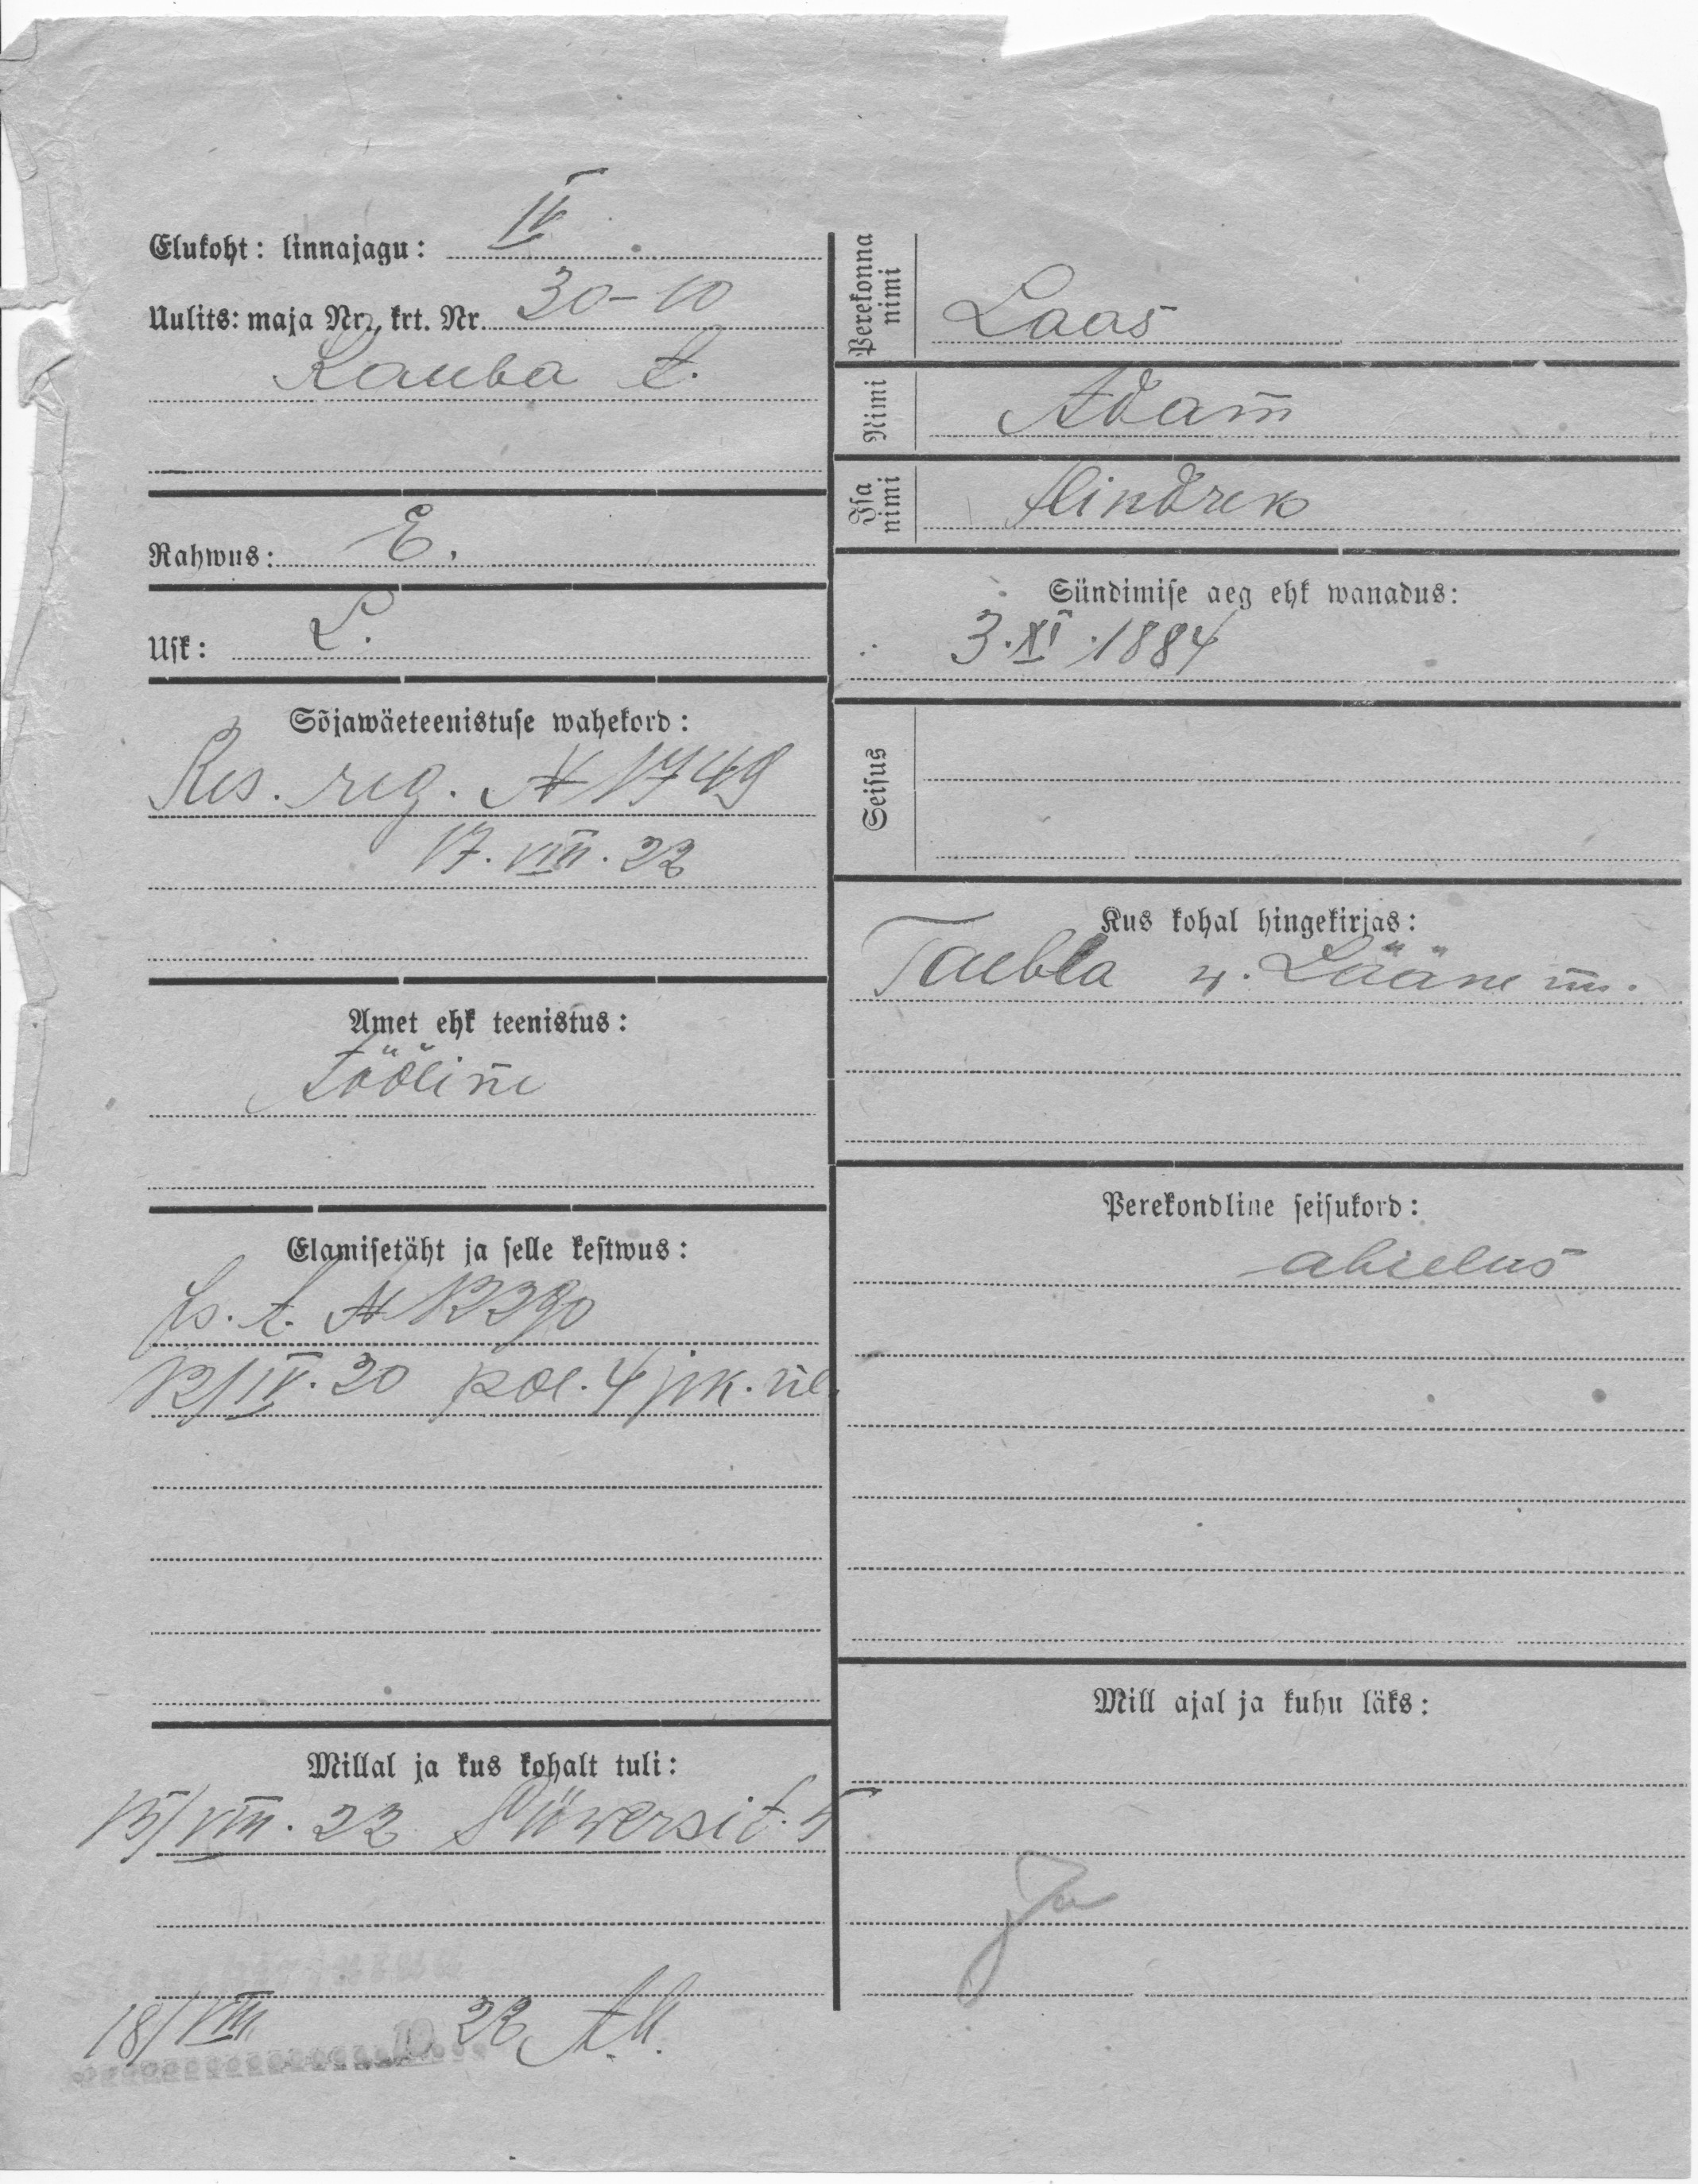 Elukoht: linnajagu: IV
Uulits: maja Nr., krt. Nr. 30-10
Kauba t.
Rahwus: E.
Usk: L.
Sõjawäeteenistuse wahekord:
Res. reg. № 1749
17. VIII. 22
Amet ehk teenistus:
Tööline
Elamisetäht ja selle kestwus:
Is. t. № 12390
12/IV. 20 pol. 4 jsk. ül.
Millal ja kus kohalt tuli:
15/VIII. 22
18/VIII 22
Perekonna nimi Laas
Nimi Adam
Isa nimi Hindrek
Sündimise aeg ehk wanadus:
3. XI. 1884
Seisus
Kus kohal hingekirjas:
Taebla w. Lääne m.
Perekondline seisukord:
abielus
Mill ajal ja kuhu läks:
Ja